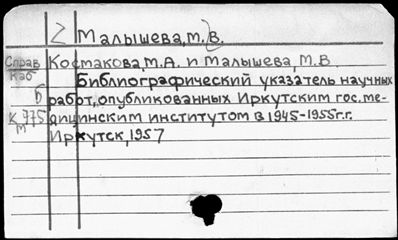 2 Малышева, М. В.
Справ Костмакова, М.А. и Малышева, М.В.
Каб Библиографический указатель научных
Б работ, опубликованных Иркутским гос. ме-
К 975 дицинским институтом в 1945-1955г.г.
м Иркутск, 1957